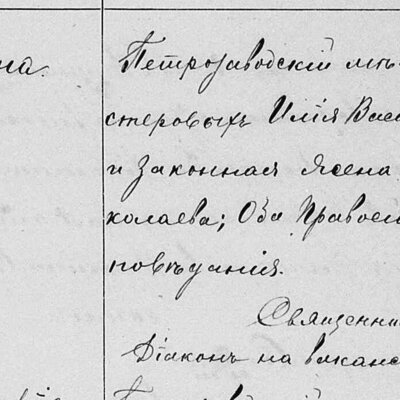 на.
Петрозаводскій мѣ
стеровыхъ Илія Васи
и законная жена
колаева; Оба Правосл
повѣданія.
Священни
Діаконъ на ваканс